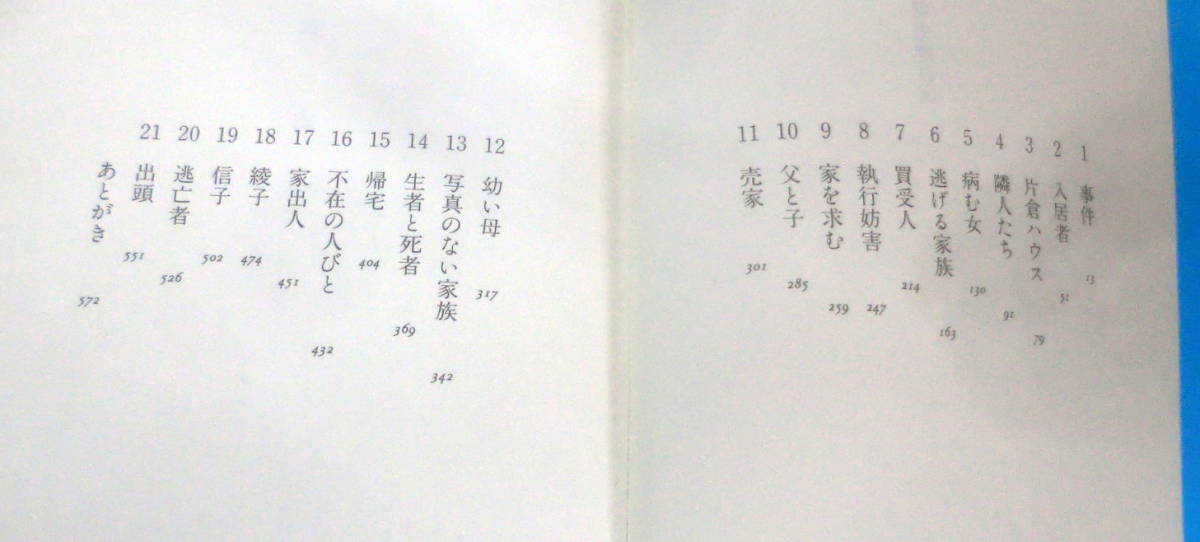 1 事件 13
2 入居者 51
3 片倉ハウス 79
4 隣人たち 91
5 病む女 130
6 逃げる家族 163
7 買受人 214
8 執行妨害 247
9 家を求む 259
10 父と子 285
11 売家 301
12 幼い母 317
13 写真のない家族 342
14 生者と死者 369
15 帰宅 404
16 不在の人びと 432
17 家出人 451
18 綾子 474
19 信子 502
20 逃亡者 526
21 出頭 551
あとがき 572